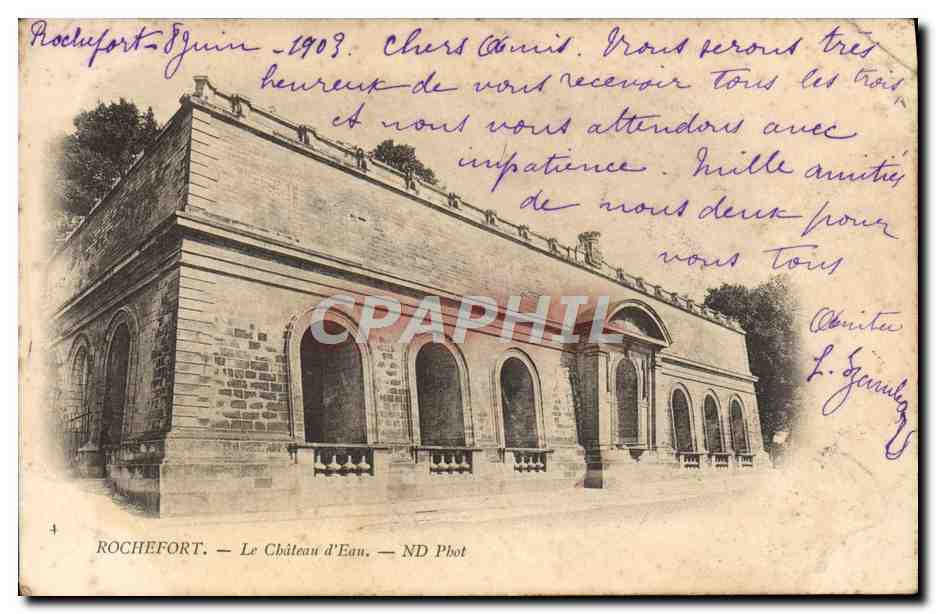 Rochefort 8 Juin - 1903. Chers Amis. Nous serons très
heureux de vous recevoir tous les trois,
et nous vous attendons avec
impatience. Mille amitiés
de nous deux pour
vous tous
Amitiés
L.
CPAPHIL
4
ROCHEFORT. — Le Château d'Eau. — ND Phot